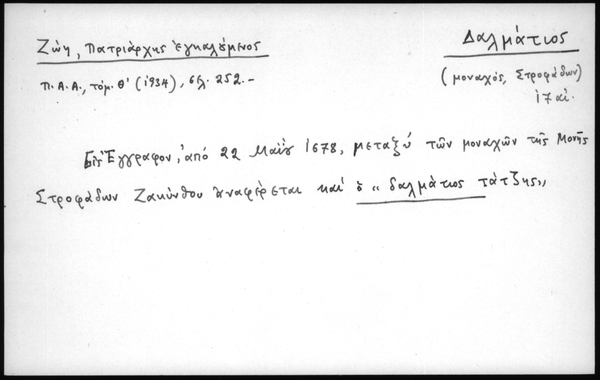 Ζώη, Πατριάρχης ἐγκαλούμενος
Δαλμάτιος
Π.Α.Α., τόμ. Θ' (1934), σελ. 252.-
(μοναχός, Στροφάδων)
17 αἰ.
Εἰς Ἔγγραφον, ἀπό 22 Μαΐου 1678, μεταξύ τῶν μοναχῶν τῆς Μονῆς
Στροφάδων Ζακύνθου ἀναφέρεται καί ὁ "δαλμάτιος τάτζης"